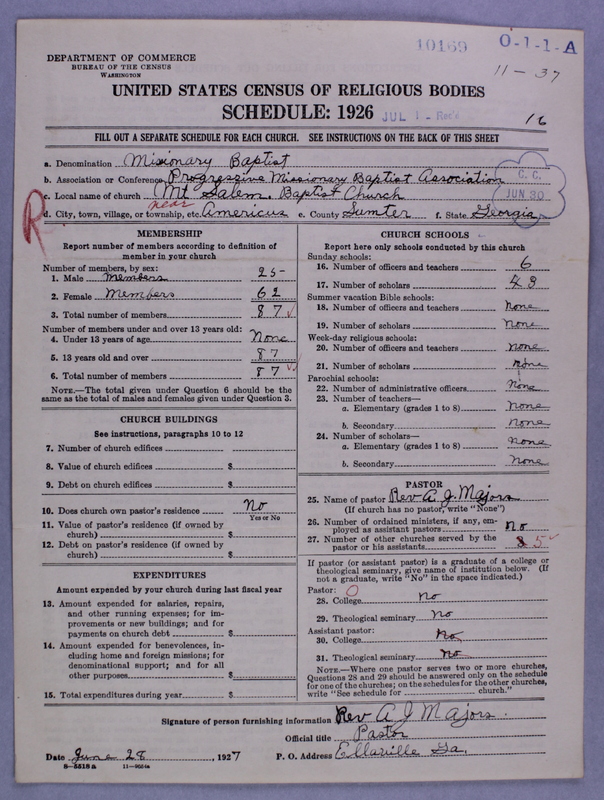 10169
O-1-1-A
11-37
DEPARTMENT OF COMMERCE
BUREAU OF THE CENSUS
WASHINGTON
UNITED STATES CENSUS OF RELIGIOUS BODIES
SCHEDULE: 1926
JUL 1 - Rec'd
16
FILL OUT A SEPARATE SCHEDULE FOR EACH CHURCH. SEE INSTRUCTIONS ON THE BACK OF THIS SHEET
a. Denomination Missionary Baptist
b. Association or Conference Progressive Missionary Baptist Association
c. Local name of church Mt Salem. Baptist Church
C. C.
JUN 30
near
d. City, town, village, or township, etc. Americus e. County Sumter f. State Georgia
R
MEMBERSHIP
Report number of members according to definition of
member in your church
Number of members, by sex:
1. Male members 25-
2. Female Members 62
3. Total number of members 87
Number of members under and over 13 years old:
4. Under 13 years of age None
5. 13 years old and over 87
6. Total number of members 87
NOTE.—The total given under Question 6 should be
same as the total of males and females given under Question 3.
CHURCH BUILDINGS
See instructions, paragraphs 10 to 12
7. Number of church edifices
8. Value of church edifices $
9. Debt on church edifices $
10. Does church own pastor's residence No
Yes or No
11. Value of pastor's residence (if owned by
church) $
12. Debt on pastor's residence (if owned by
church) $
EXPENDITURES
Amount expended by your church during last fiscal year
13. Amount expended for salaries, repairs,
and other running expenses; for im-
provements or new buildings; and for
payments on church debt $
14. Amount expended for benevolences, in-
cluding home and foreign missions; for
denominational support; and for all
other purposes $
15. Total expenditures during year $
CHURCH SCHOOLS
Report here only schools conducted by this church
Sunday schools:
16. Number of officers and teachers 6
17. Number of scholars 49
Summer vacation Bible schools:
18. Number of officers and teachers none
19. Number of scholars none
Week-day religious schools:
20. Number of officers and teachers none
21. Number of scholars none
Parochial schools:
22. Number of administrative officers none
23. Number of teachers—
a. Elementary (grades 1 to 8) none
b. Secondary none
24. Number of scholars—
a. Elementary (grades 1 to 8) none
b. Secondary none
PASTOR
25. Name of pastor Rev A. J. Majors
(If church has no pastor, write "None")
26. Number of ordained ministers, if any, em-
ployed as assistant pastors no
27. Number of other churches served by the
pastor or his assistants 5
If pastor (or assistant pastor) is a graduate of a college or
theological seminary, give name of institution below. (If
not a graduate, write "No" in the space indicated.)
Pastor: O
28. College no
29. Theological seminary no
Assistant pastor:
30. College no
31. Theological seminary no
NOTE.—Where one pastor serves two or more churches,
Questions 28 and 29 should be answered only on the schedule
for one of the churches; on the schedules for the other churches,
write "See schedule for church."
Signature of person furnishing information Rev A J Majors
Official title Pastor
Date June 28, 1927 P. O. Address Ellaville Ga.
8-5518 a 11-9664a